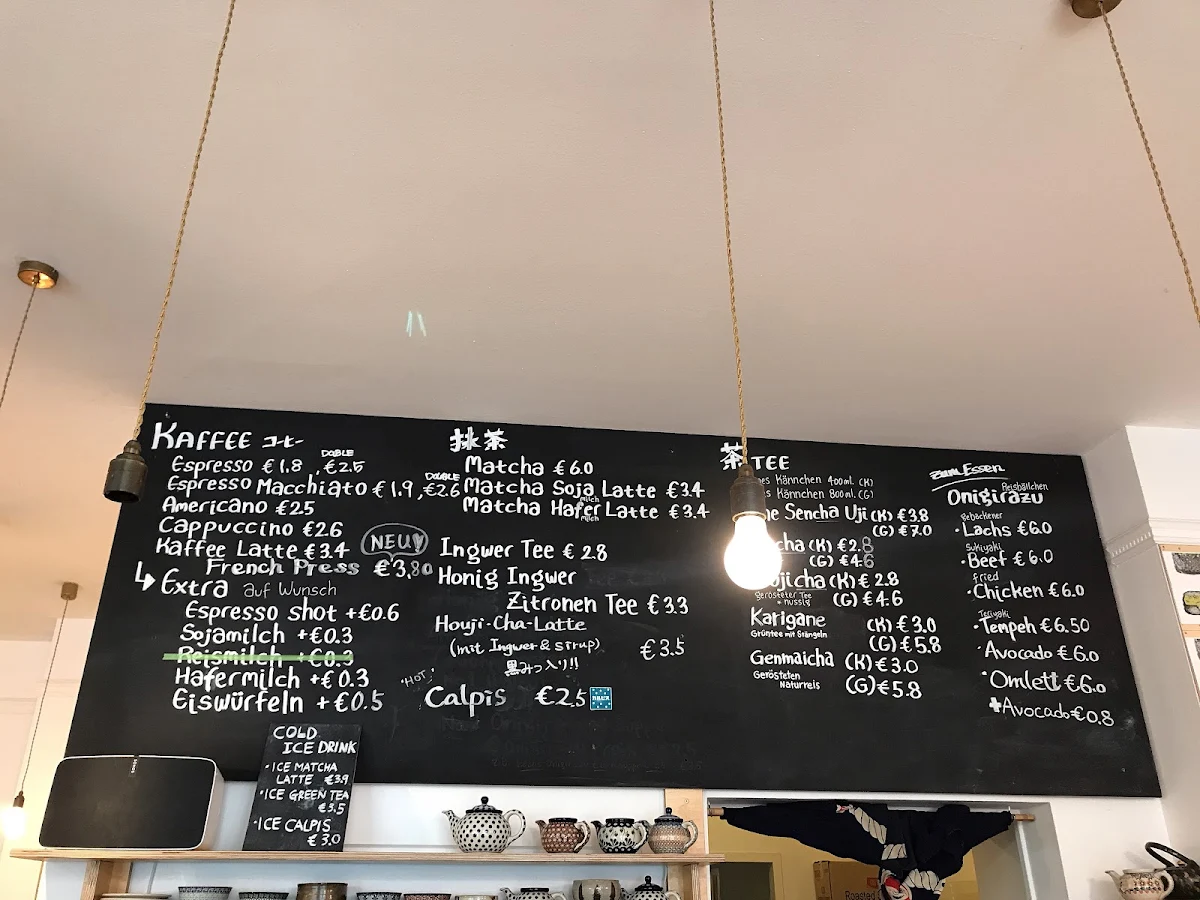 KAFFEE コーヒー
DOBLE
Espresso €1.8 , €2.5
DOUBLE
Espresso Macchiato €1.9, €2.6
Americano €2.5
Cappuccino €2.6
Kaffee Latte €3.4
NEU
French Press €3,80
Extra auf Wunsch
Espresso shot +€0.6
Sojamilch +€0.3
Reismilch +€0.3
Hafermilch +€0.3
Eiswürfeln +€0.5
抹茶
Matcha €6.0
Matcha Soja Latte €3.4
milch
Matcha Hafer Latte €3.4
milch
Ingwer Tee €2.8
Honig Ingwer
Zitronen Tee €3.3
Houji-Cha-Latte
(mit Ingwer & sirup) €3.5
黒みつ入り!!
"HOT"
Calpis €2.5
茶 TEE
Kännchen 400ml. (K)
Kännchen 800ml. (G)
Sencha Uji (K) €3.8
(G) €7.0
(K) €2.8
(G) €4.6
(K) €2.8
gerösteter Tee
+ nussig (G) €4.6
Karigane (K) €3.0
Grüntee mit Stängeln
(G) €5.8
Genmaicha (K) €3.0
Gerösteten
Naturreis (G) €5.8
zum Essen
Reisbällchen
Onigirazu
gebackener
· Lachs €6.0
Sukiyaki
· Beef €6.0
fried
· Chicken €6.0
Teriyaki
· Tempeh €6.50
· Avocado €6.0
· Omlett €6.0
+Avocado €0.8
COLD
ICE DRINK
· ICE MATCHA
LATTE €3.9
· ICE GREEN TEA
€3.5
· ICE CALPIS
€3.0
SONOS
Roasted